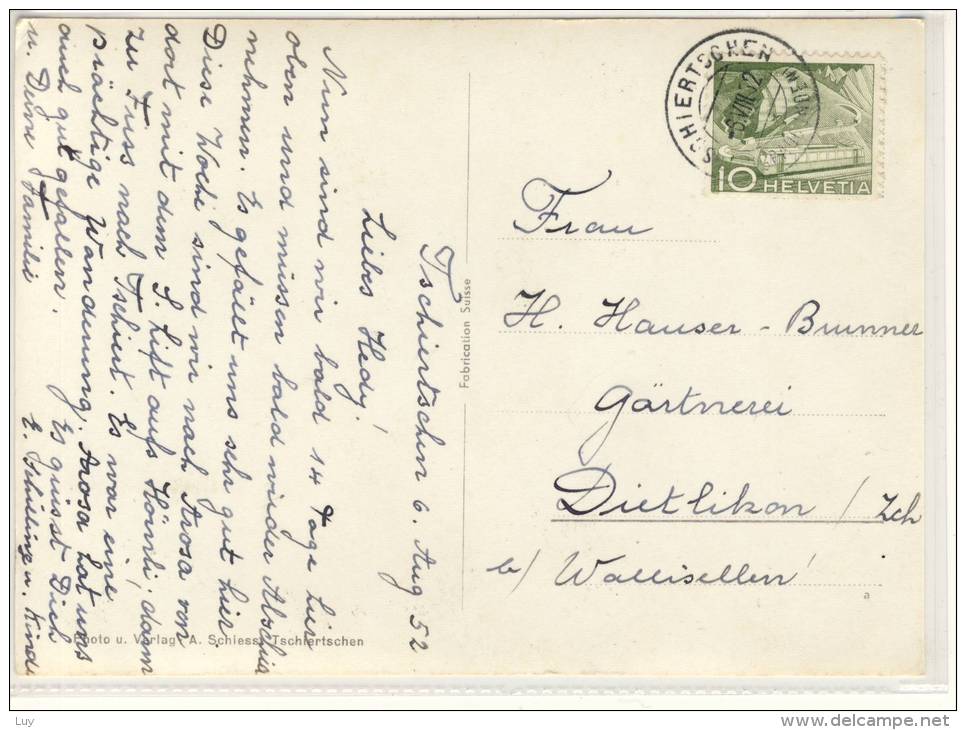 Tschiertschen 6. Aug. 52
Liebes Hedy!
Nun sind wir bald 14 Tage hier
oben und müssen bald wieder Abschied
nehmen. Es gefällt uns sehr gut hier.
Diese Woche sind wir nach Arosa von
dort mit dem S. Lift aufs Hörnli, dann
zu Fuss nach Tschiert. Es war eine
prächtige Wanderung. Arosa hat uns
auch gut gefallen. Es grüsst Dich
u. Deine Familie
E. u. Kinder
Photo u. Verlag A. Schiess, Tschiertschen
Fabrication Suisse
TSCHIERTSCHEN
VIII.52
10 HELVETIA
Frau
H. Hauser-Brunner
Gärtnerei
Dietlikon / Zch
b/ Wallisellen
a
Luy
delcampe.net